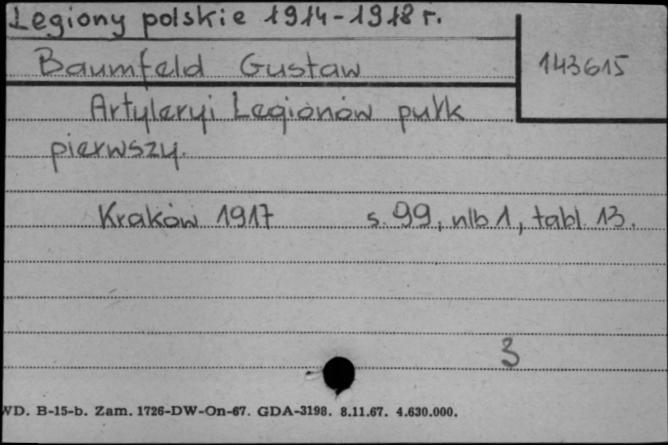 Legiony polskie 1914-1918 r.
Baumfeld Gustaw
143615
Artyleryi Legionów pułk
pierwszy.
Kraków 1917 s. 99, nlb 1, tabl. 13.
3
WD. B-15-b. Zam. 1726-DW-On-67. GDA-3198. 8.11.67. 4.630.000.